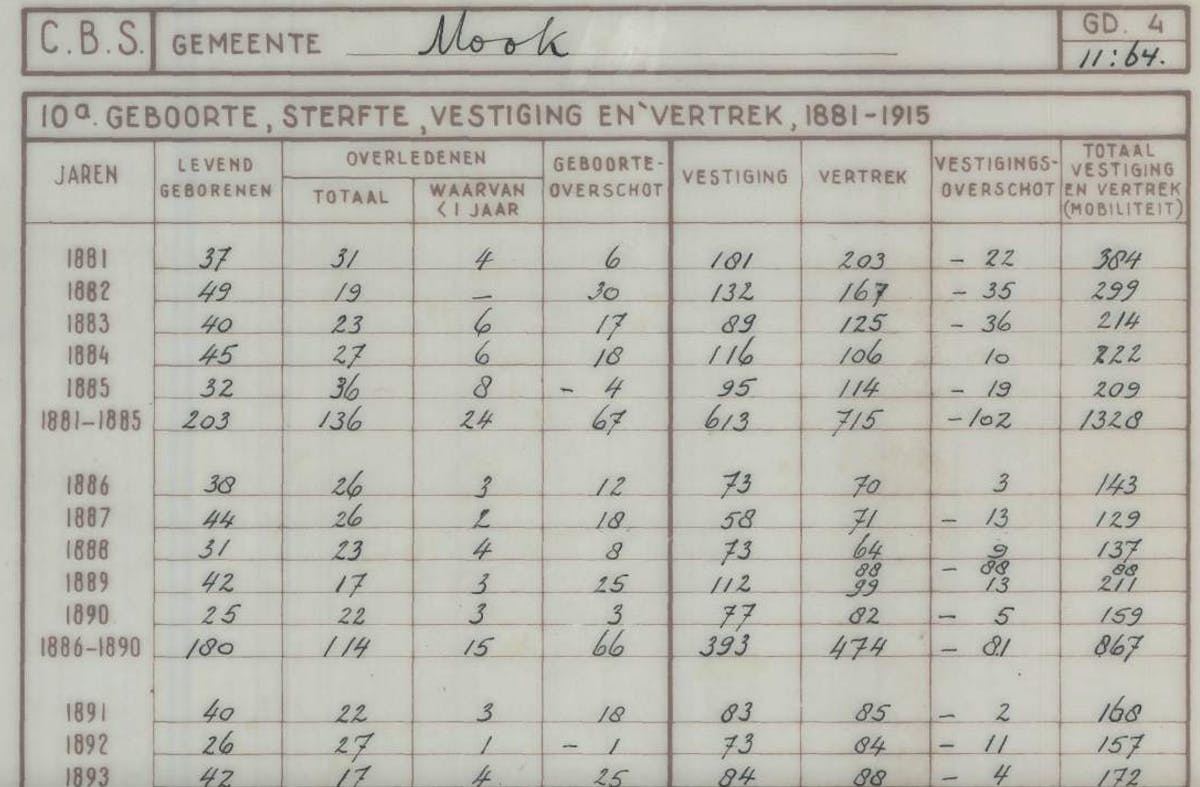 C.B.S. GEMEENTE Mook GD. 4
11:64.
10a. GEBOORTE, STERFTE, VESTIGING EN VERTREK, 1881-1915
JAREN LEVEND GEBORENEN OVERLEDENEN TOTAAL WAARVAN < 1 JAAR GEBOORTE-OVERSCHOT VESTIGING VERTREK VESTIGINGS-OVERSCHOT TOTAAL VESTIGING EN VERTREK (MOBILITEIT)
1881 37 31 4 6 181 203 - 22 384
1882 49 19 — 30 132 167 - 35 299
1883 40 23 6 17 89 125 - 36 214
1884 45 27 6 18 116 106 10 222
1885 32 36 8 - 4 95 114 - 19 209
1881-1885 203 136 24 67 613 715 -102 1328
1886 38 26 3 12 73 70 3 143
1887 44 26 2 18 58 71 - 13 129
1888 31 23 4 8 73 64 9 137
88 - 88 88
1889 42 17 3 25 112 99 13 211
1890 25 22 3 3 77 82 - 5 159
1886-1890 180 114 15 66 393 474 - 81 867
1891 40 22 3 18 83 85 - 2 168
1892 26 27 1 - 1 73 84 - 11 157
1893 42 17 4 25 84 88 - 4 172